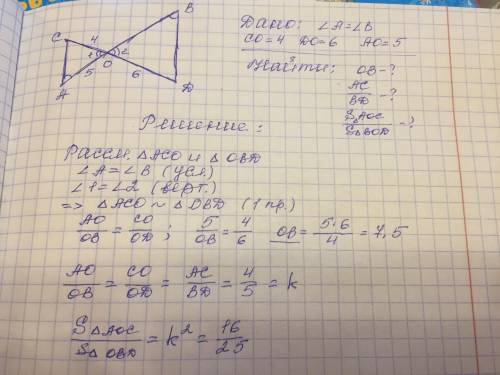 B
C
4
1
2
O
5
6
A
D
Дано: ∠A=∠B
CO=4 DO=6 AO=5
Найти: OB-?
AC/BD -?
S△AOC/S△BOD -?
Решение:
Рассм. △ACO и △OBD
∠A=∠B (усл.)
∠1=∠2 (верт.)
=> △ACO ~ △OBD (1 пр.)
AO/OB = CO/OD ; 5/OB = 4/6 OB = 5·6/4 = 7,5
AO/OB = CO/OD = AC/BD = 4/5 = k
S△AOC/S△OBD = k² = 16/25